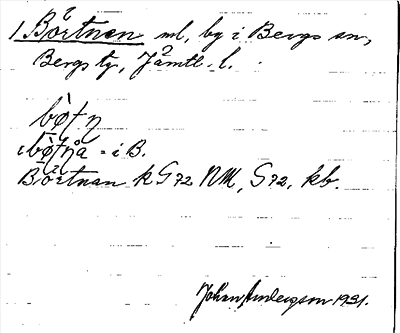 1 Börtnan ml, by i Bergs sn,
Bergs tg, Jämtl. l.
bø̀ṭn̥
i bø̀ṭnå = i B.
Börtnan k G72 NM, S72, kb.
Johan Anderson 1931.